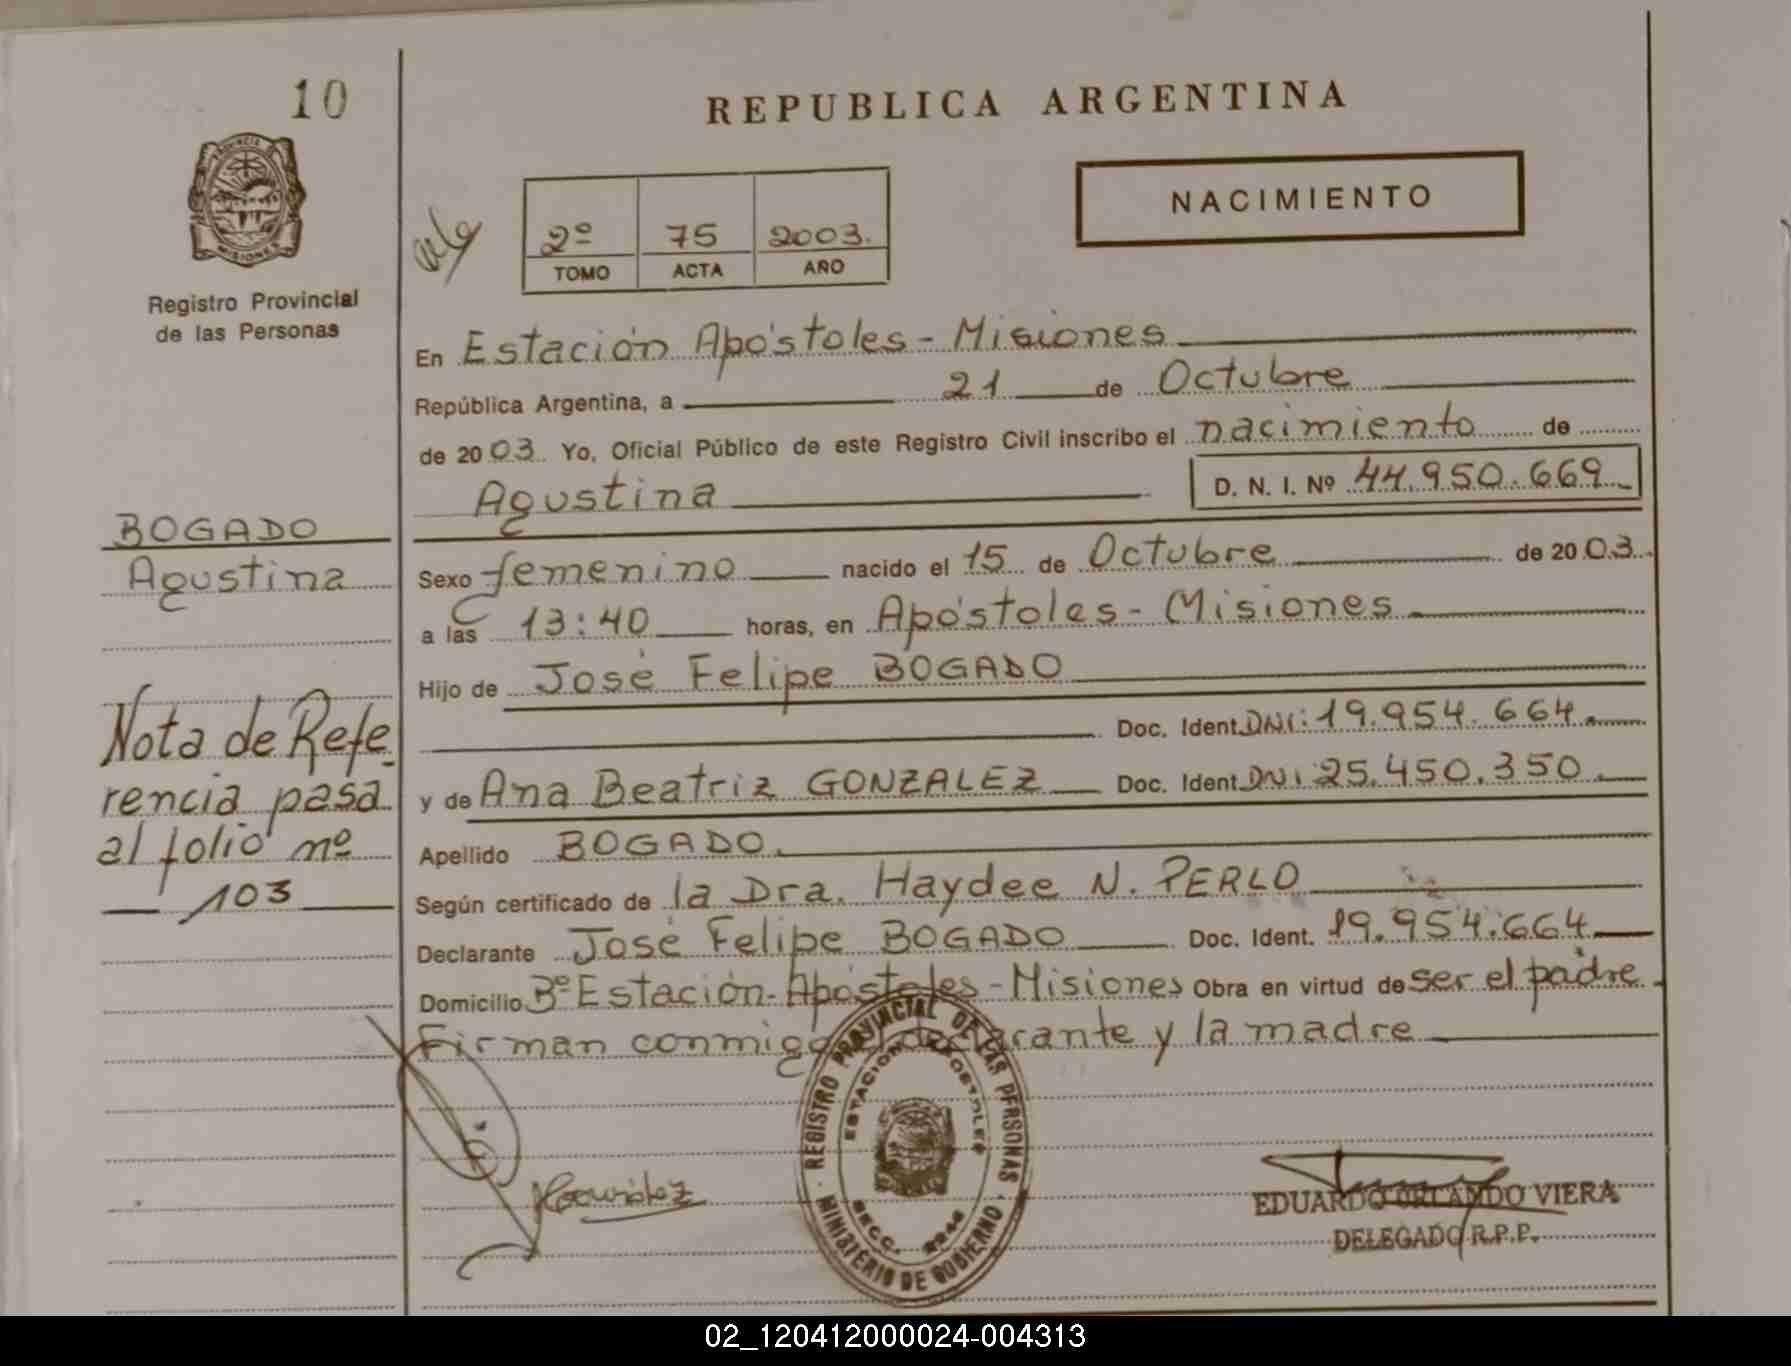 10
REPUBLICA ARGENTINA
PROVINCIA DE
MISIONES
Registro Provincial
de las Personas
2º 75 2003.
TOMO ACTA AÑO
NACIMIENTO
En Estación Apóstoles - Misiones
República Argentina, a 21 de Octubre
de 2003. Yo, Oficial Público de este Registro Civil inscribo el nacimiento de
Agustina D. N. I. Nº 44.950.669
BOGADO
Agustina
Sexo femenino nacido el 15 de Octubre de 2003.
a las 13:40 horas, en Apóstoles - Misiones
Hijo de José Felipe BOGADO
Doc. Ident. DNI: 19.954.664
y de Ana Beatriz GONZALEZ Doc. Ident. DNI: 25.450.350
Apellido BOGADO
Según certificado de la Dra. Haydee N. PERLO
Declarante José Felipe BOGADO Doc. Ident. 19.954.664
Domicilio Bº Estación - Apóstoles - Misiones Obra en virtud de ser el padre.
Firman conmigo el declarante y la madre
Nota de Refe-
rencia pasa
al folio nº
103
REGISTRO PROVINCIAL DE LAS PERSONAS
ESTACION APOSTOLES
MINISTERIO DE GOBIERNO
EDUARDO ORLANDO VIERA
DELEGADO R.P.P.
02_120412000024-004313